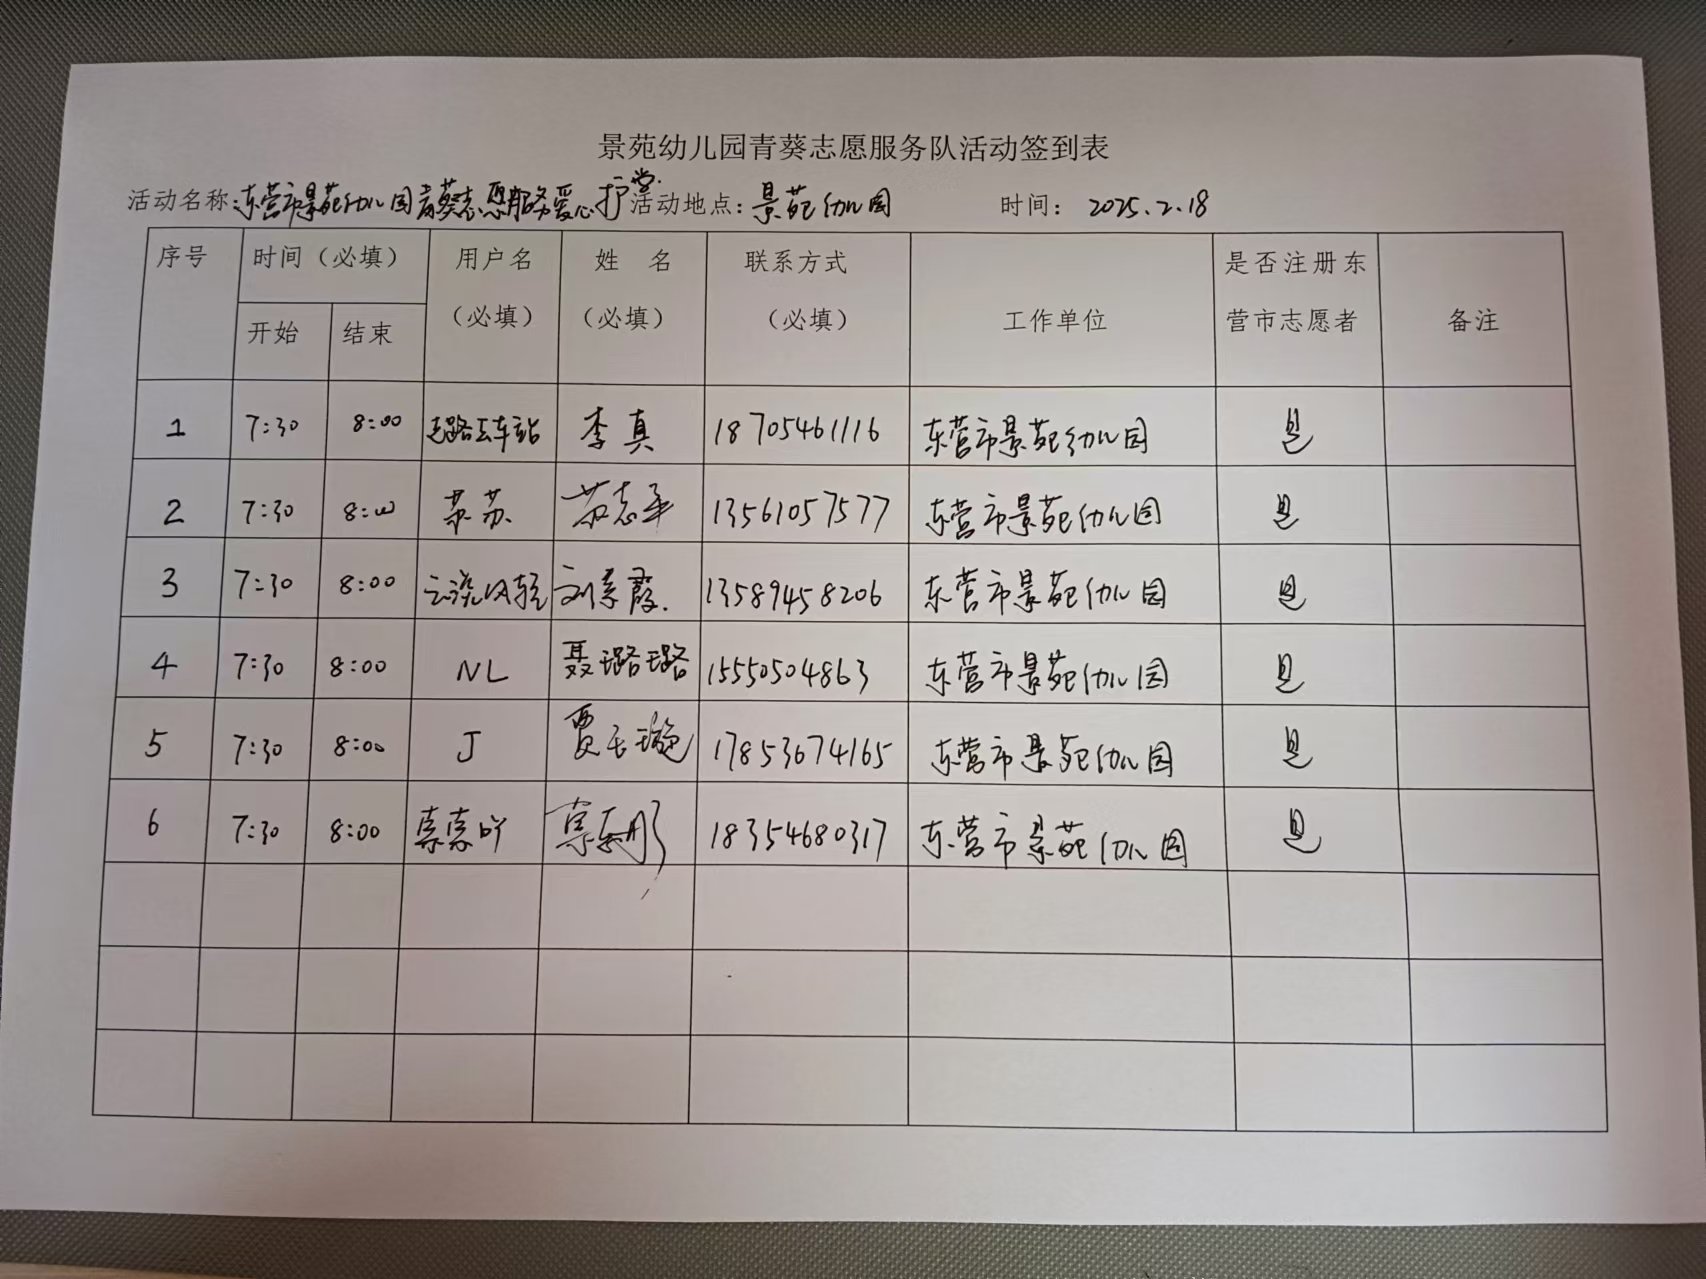 景苑幼儿园青葵志愿服务队活动签到表
活动名称:东营市景苑幼儿园青葵志愿服务爱心护学 活动地点:景苑幼儿园 时间: 2025.2.18
序号 时间(必填) 用户名 姓 名 联系方式 是否注册东
(必填) (必填) (必填) 工作单位 营市志愿者 备注
开始 结束
1 7:30 8:00 李真 18705461116 东营市景苑幼儿园 是
2 7:30 8:00 苏苏 苏志平 13561057577 东营市景苑幼儿园 是
3 7:30 8:00 云淡风轻 刘素霞 13589458206 东营市景苑幼儿园 是
4 7:30 8:00 NL 聂璐璐 15550504863 东营市景苑幼儿园 是
5 7:30 8:00 J 贾玉璇 17853674165 东营市景苑幼儿园 是
6 7:30 8:00 18354680317 东营市景苑幼儿园 是